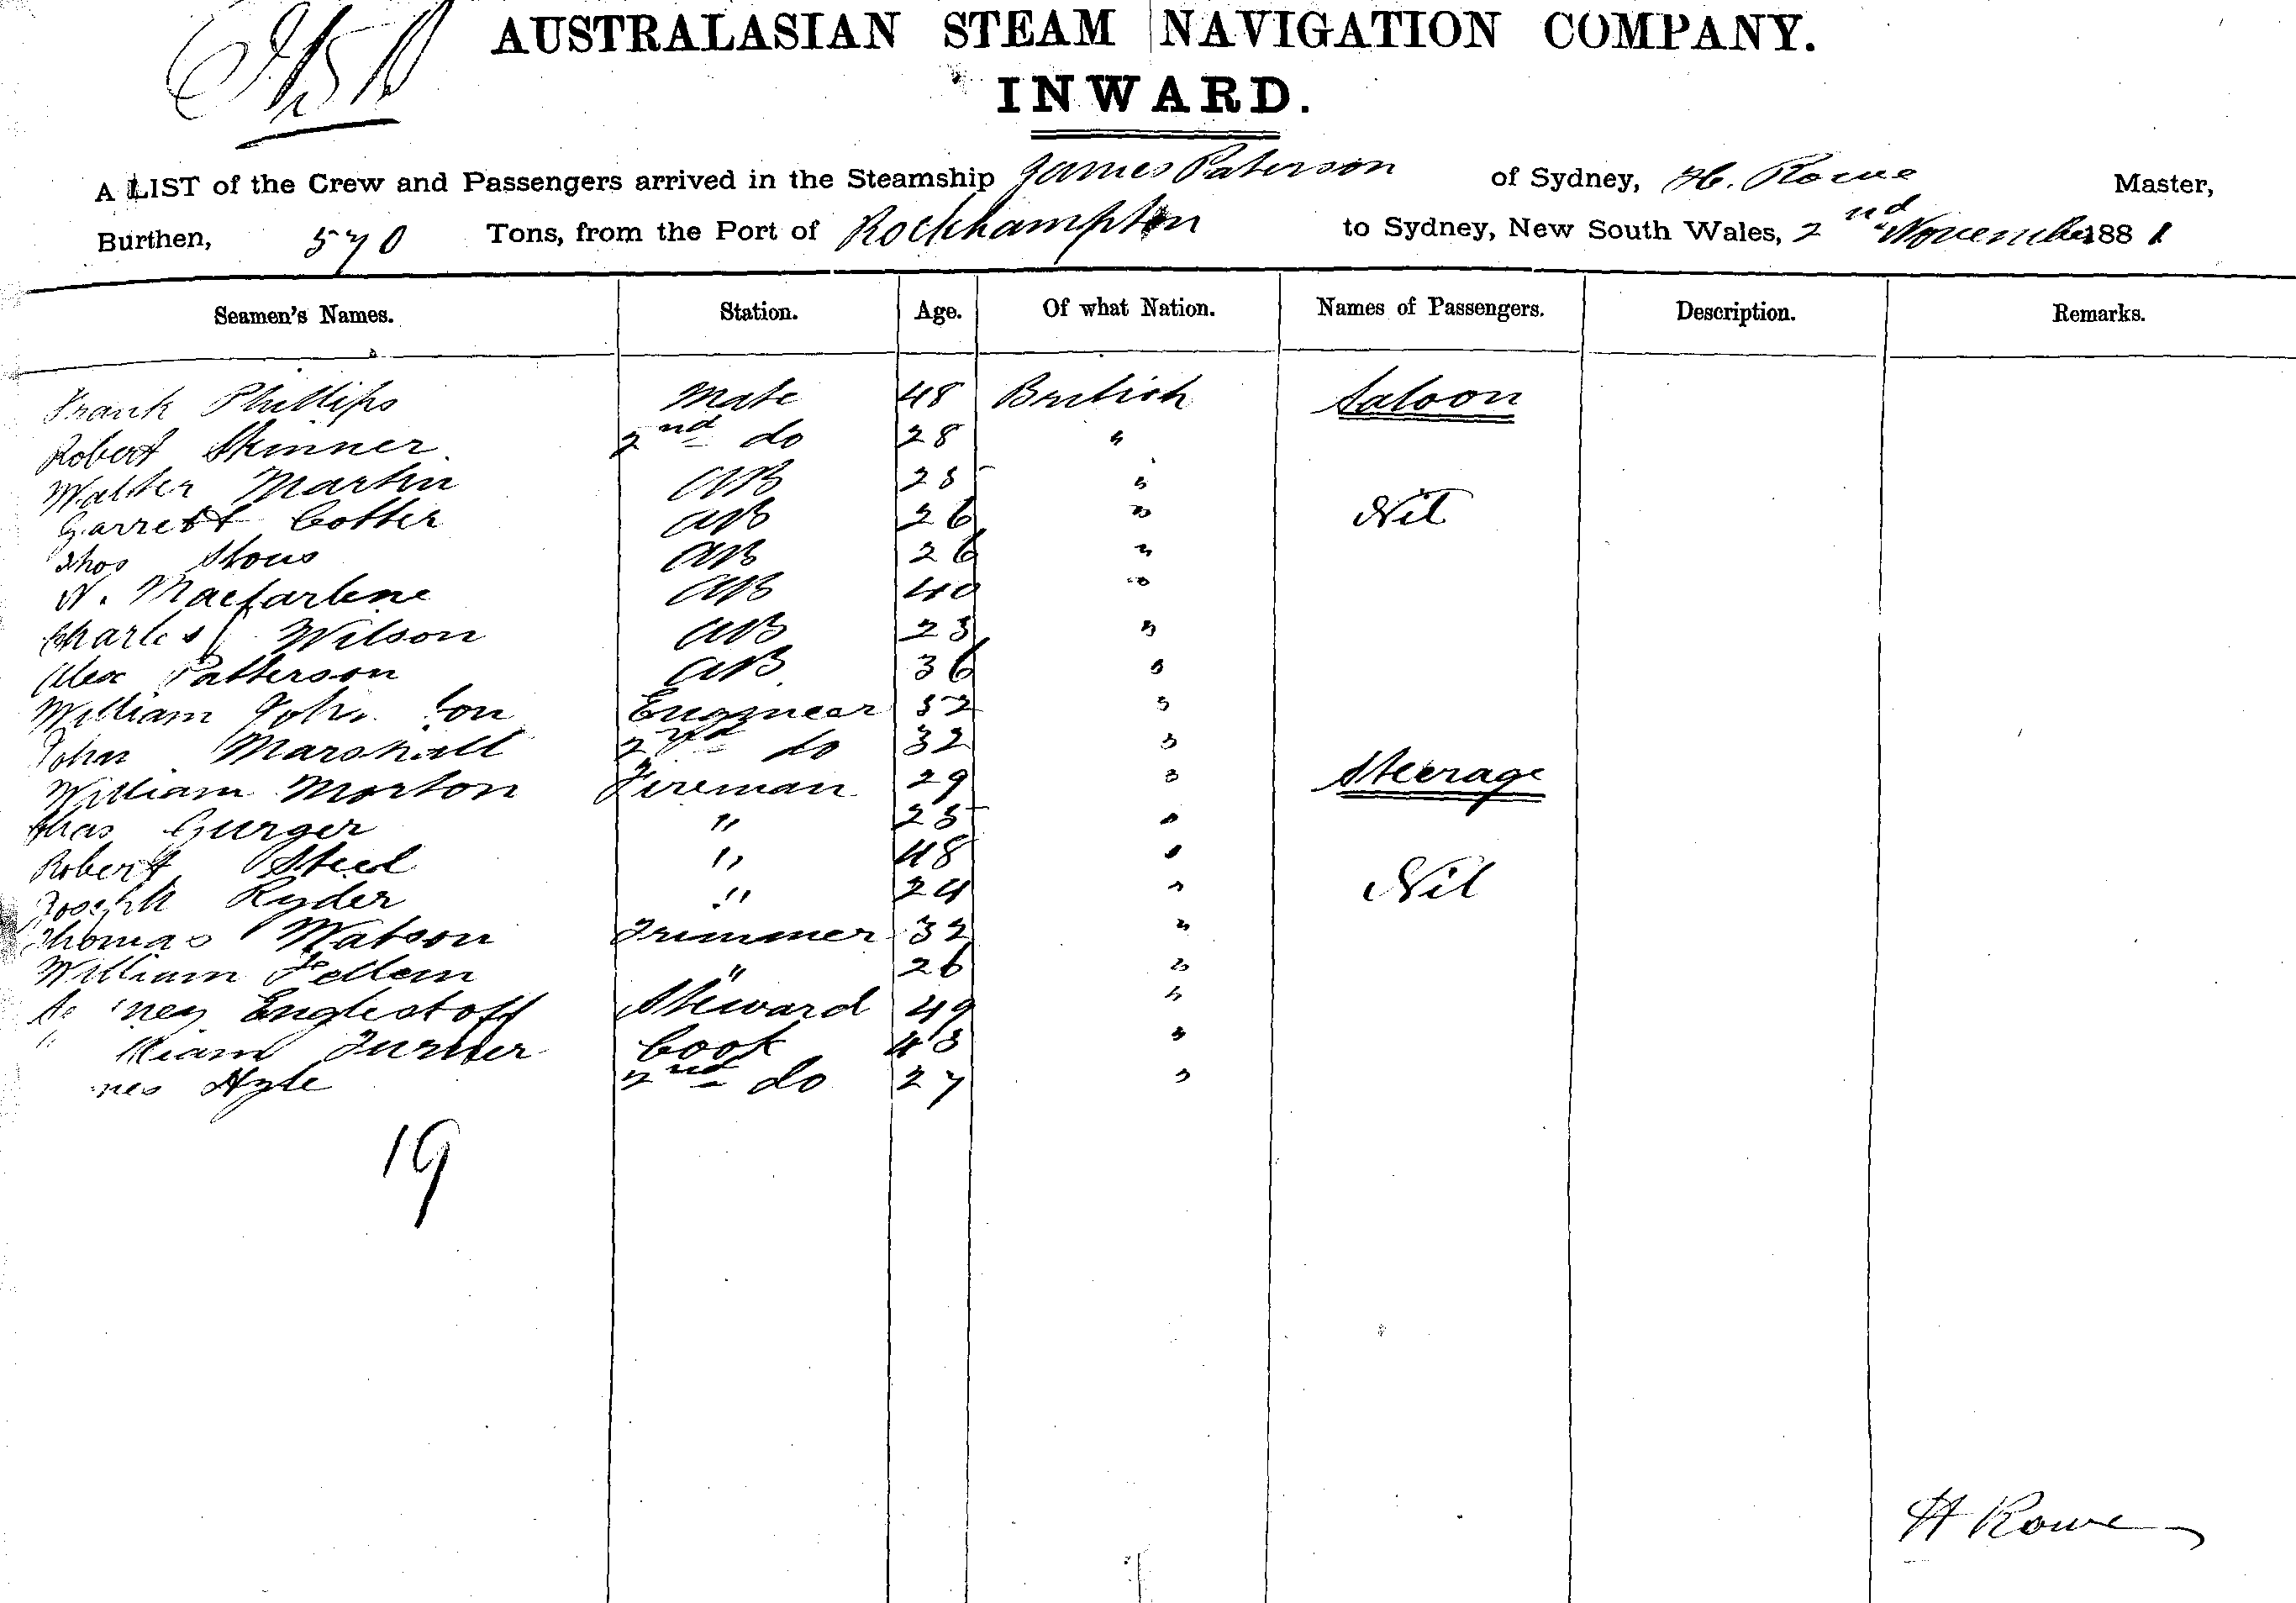 AUSTRALASIAN STEAM NAVIGATION COMPANY.
INWARD.
A LIST of the Crew and Passengers arrived in the Steamship James Paterson of Sydney, H. Rowe Master,
Burthen, 570 Tons, from the Port of Rockhampton to Sydney, New South Wales, 2nd November 1881
Seamen's Names. Station. Age. Of what Nation. Names of Passengers. Description. Remarks.
Frank Phillips Mate 48 British Saloon
Robert Skinner 2nd do 28 "
Walter Martin AB 25 "
Garrett Cotter AB 26 " Nil
Thos Stous AB 26 "
N. Macfarlene AB 40 "
Charles Wilson AB 23 "
Alex Patterson AB 36 "
William Johnson Engineer 32 "
John Marshall 2nd do 32 "
William Morton Fireman 29 " Steerage
Chas Gurger " 25 "
Robert Steel " 48 "
Joseph Ryder " 24 " Nil
Thomas Watson Trimmer 32 "
William Fellem " 26 "
Englestoff Steward 49 "
William Turner Cook 43 "
Hyle 2nd do 27 "
19
H Rowe